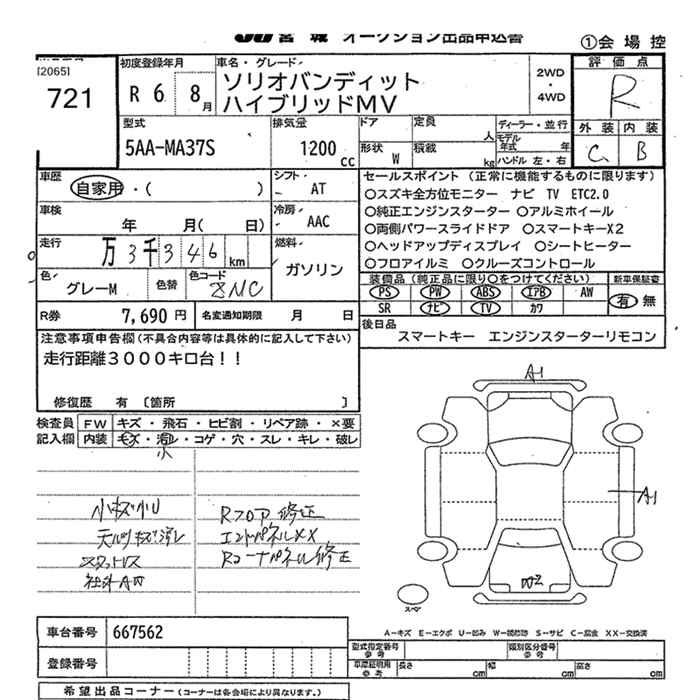 JU 宮城 オークション出品申込書
①会場控
[2065]
721
初度登録年月
R 6 8月
車名・グレード
ソリオバンディット
ハイブリッドMV
2WD
・
4WD
評価点
R
外装 内装
C B
型式
5AA-MA37S
排気量
1200 cc
ドア
形状 W
定員 人
積載 kg
ディーラー・並行
モデル年式 年
ハンドル 左・右
車歴
自家用・( )
シフト
AT
車検
年 月( 日)
冷房
AAC
走行
万3千346 km
燃料
ガソリン
色
グレーM
色替
色コード
ZMC
R券 7,690 円
名変通知期限 月 日
セールスポイント (正常に機能するものに限ります)
○スズキ全方位モニター ナビ TV ETC2.0
○純正エンジンスターター ○アルミホイール
○両側パワースライドドア ○スマートキーX2
○ヘッドアップディスプレイ ○シートヒーター
○フロアイルミ ○クルーズコントロール
装備品 (純正品に限り○をつけてください)
新車保証書
PS PW ABS エアB AW
SR ナビ TV カワ
有 無
後日品
スマートキー エンジンスターターリモコン
注意事項申告欄 (不具合内容等は具体的に記入して下さい)
走行距離3000キロ台!!
修復歴 有 〔箇所 〕
検査員記入欄
FW キズ・飛石・ヒビ割・リペア跡・×要
内装 キズ・汚レ・コゲ・穴・スレ・キレ・破レ
小
小キズ小U
Rフロア修正
エンドパネルXX
Rコーナーパネル修正
スタッドレス
社外AW
A1
A1
W2
スペア
A-キズ E-エクボ U-凹み W-補修跡 S-サビ C-腐食 XX-交換済
車台番号 667562
登録番号
型式指定番号 参考
類別区分番号 参考
車庫証明用 参考
長さ cm 幅 cm 高さ cm
希望出品コーナー (コーナーは各会場により異なります。)